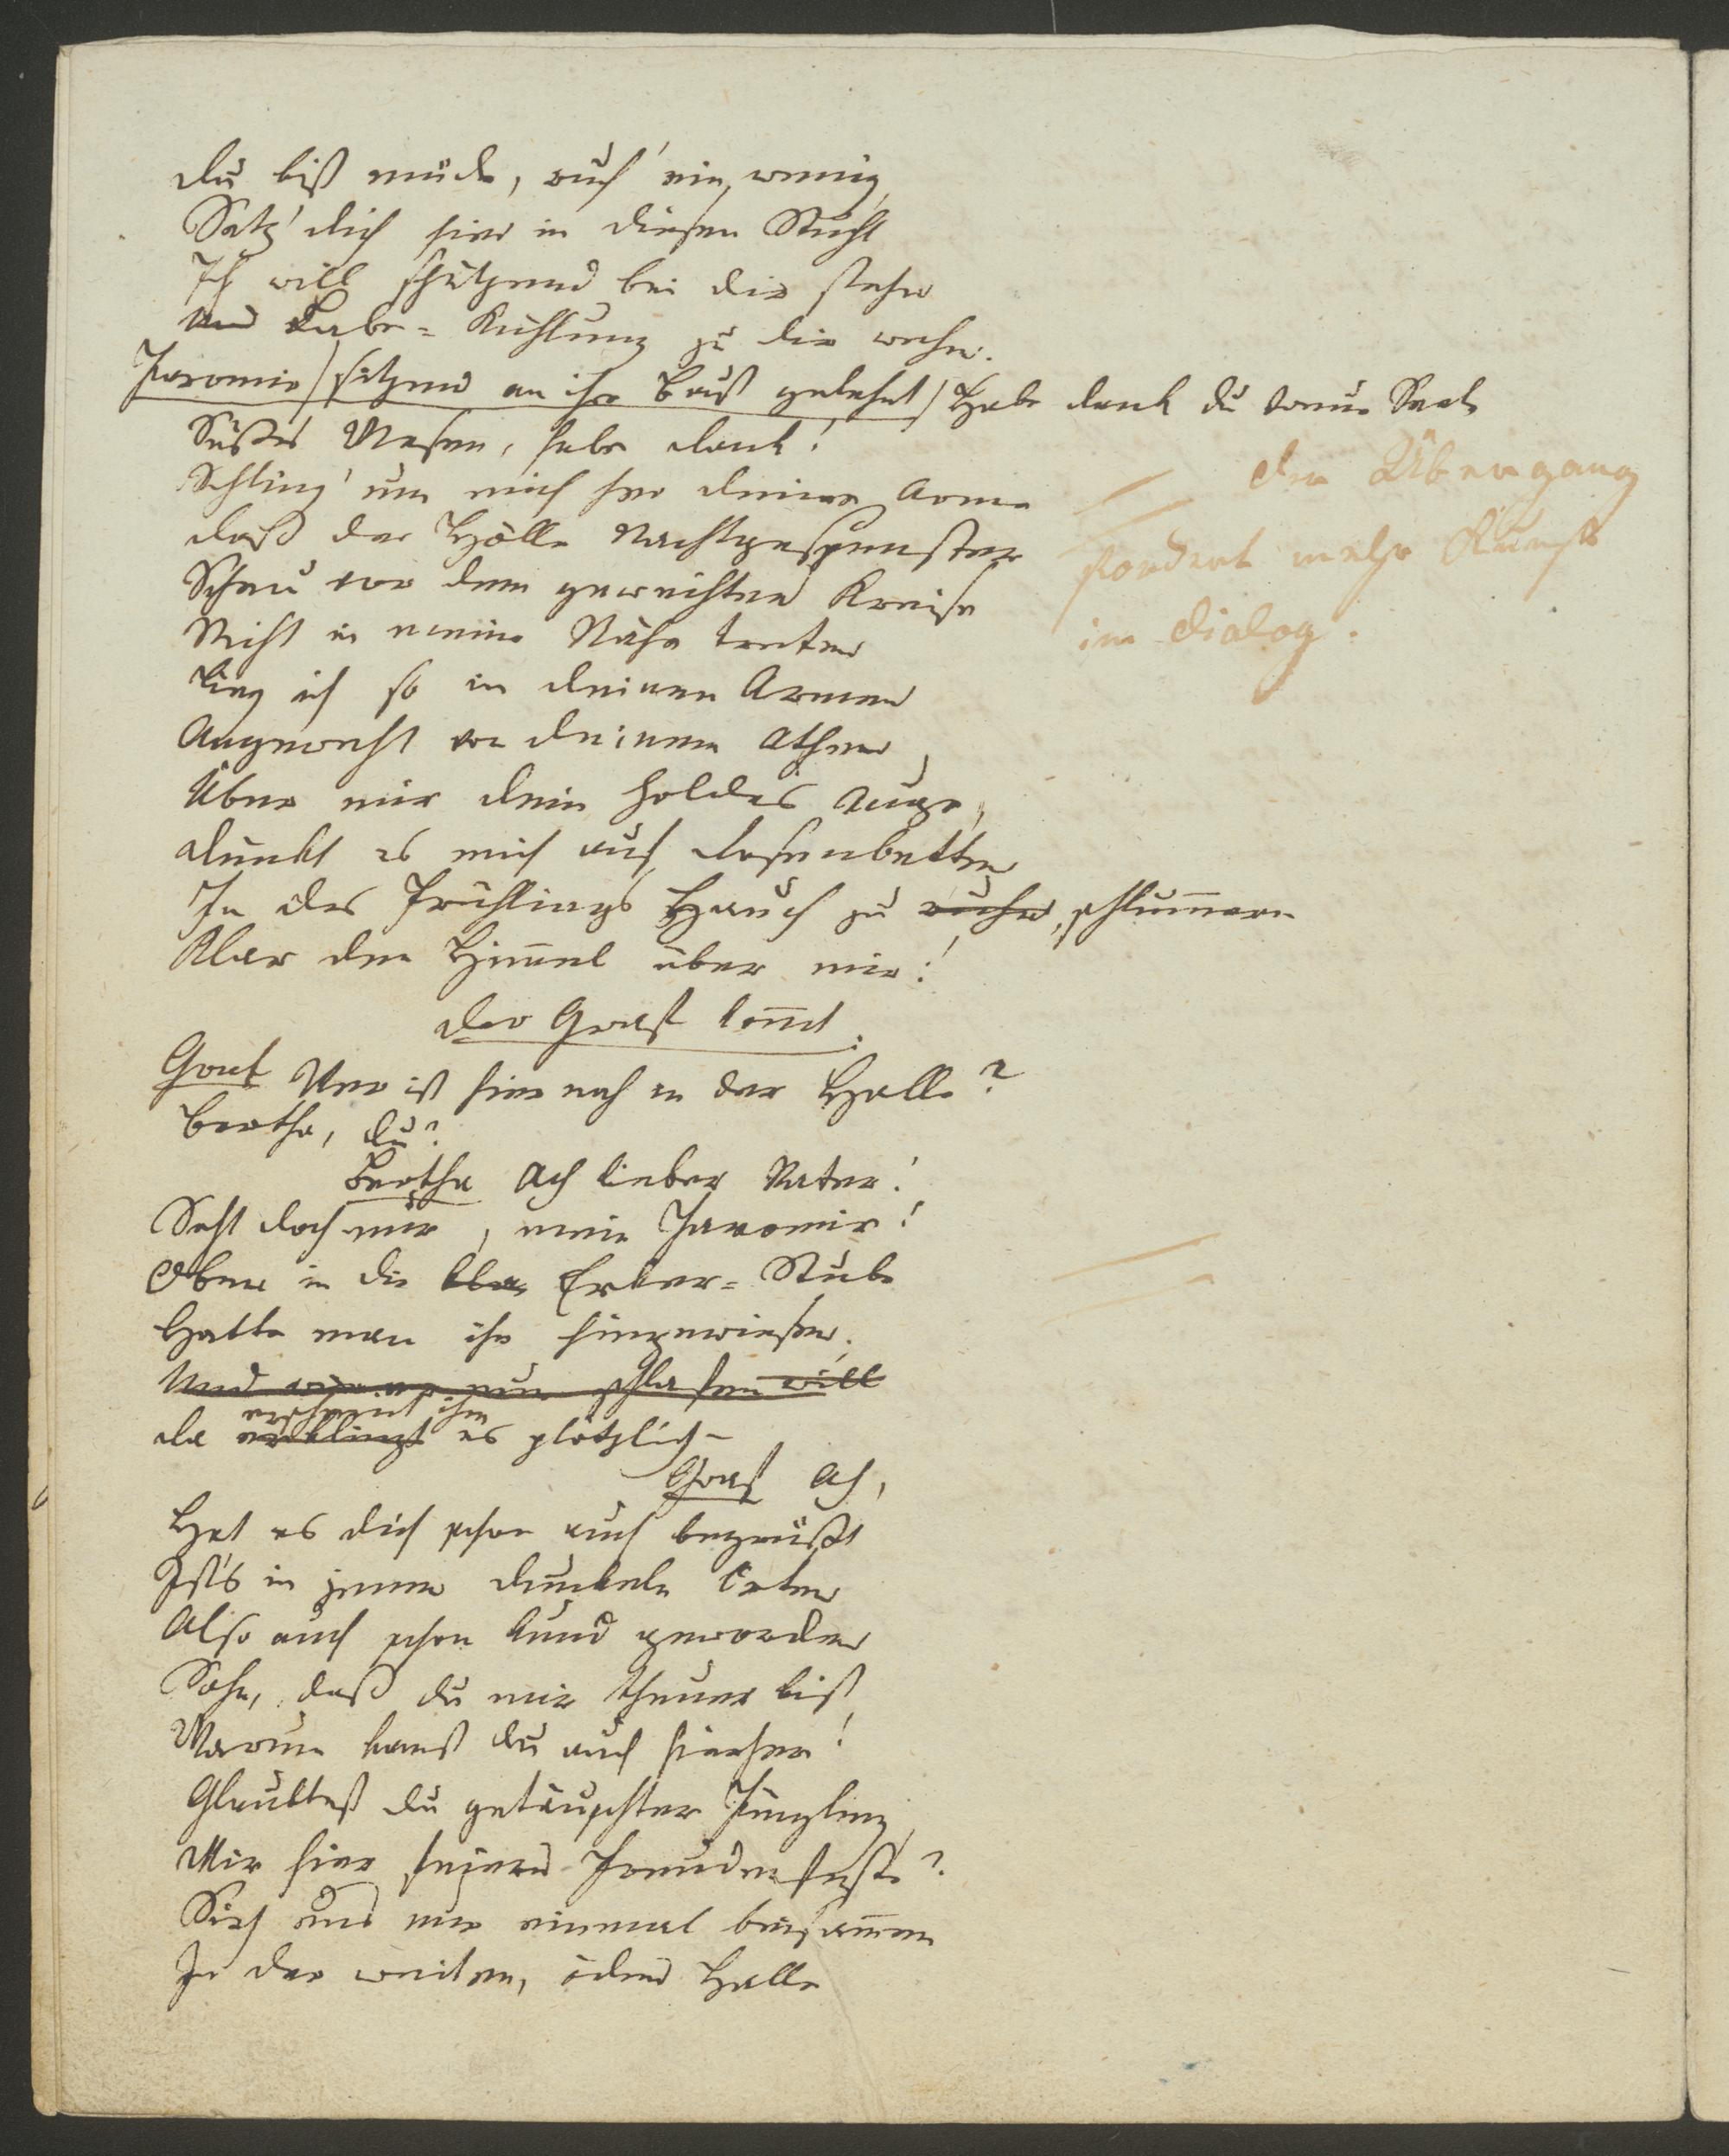 du bist müde, ruh' ein wenig
Setz' dich hier in diesen Stuhl
Ich will schützend bei dir stehn
Und Labe-Kühlung zu dir wehn.
Jaromir /sitzend an ihre Brust gelehnt/ Habe dank du treue Seele
Süßes Wesen, habe dank!
Schling' um mich her deine Arme
daß der Hölle Nachtgespenster
Scheu vor dem geweihten Kreise
Nicht in meine Nähe treten
Lieg ich so in deinen Armen
Angeweht von deinem Athem,
Über mir dein holdes Auge,
dünkt es mich auf Rosenbetten
In des Frühlings Hauch zu ruhn, schlum̄ern
Klar den Him̄el über mir!
der Graf kom̄t.
Graf Wer ist hier noch in der Halle?
Bertha, du?
Bertha Ach lieber Vater!
Seht doch nur, mein Jaromir!
Oben in die Erker-Stube
Hatte man ihn hingewiesen.
Und wie er nun schlafen will
erscheint ihm
da erklingt es plötzlich–
Graf Ach,
Hat es dich schon auch begrüßt
Ist's in jenen dunkeln Orten
Also auch schon kund geworden
Sohn, daß du mir theuer bist
Warum kamst du auch hierher!
Glaubtest du getäuschter Jüngling
Wir hier feyern Freudenfeste?
Sieh uns nur einmal beisam̄en
In der weiten, öden Halle
der Übergang
fordert mehr Kunst
im Dialog.